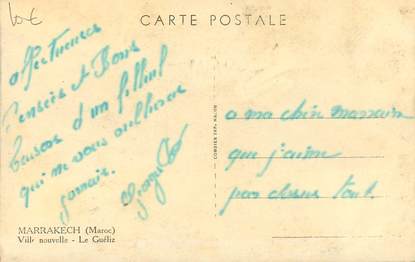 10€
CARTE POSTALE
affectueuses
Pensées et Bons
baisers d'un filleul
qui ne vous oubliera
jamais.
a ma chère marraine
que j'aime
par dessus tout.
MARRAKECH (Maroc)
Ville nouvelle - Le Guéliz